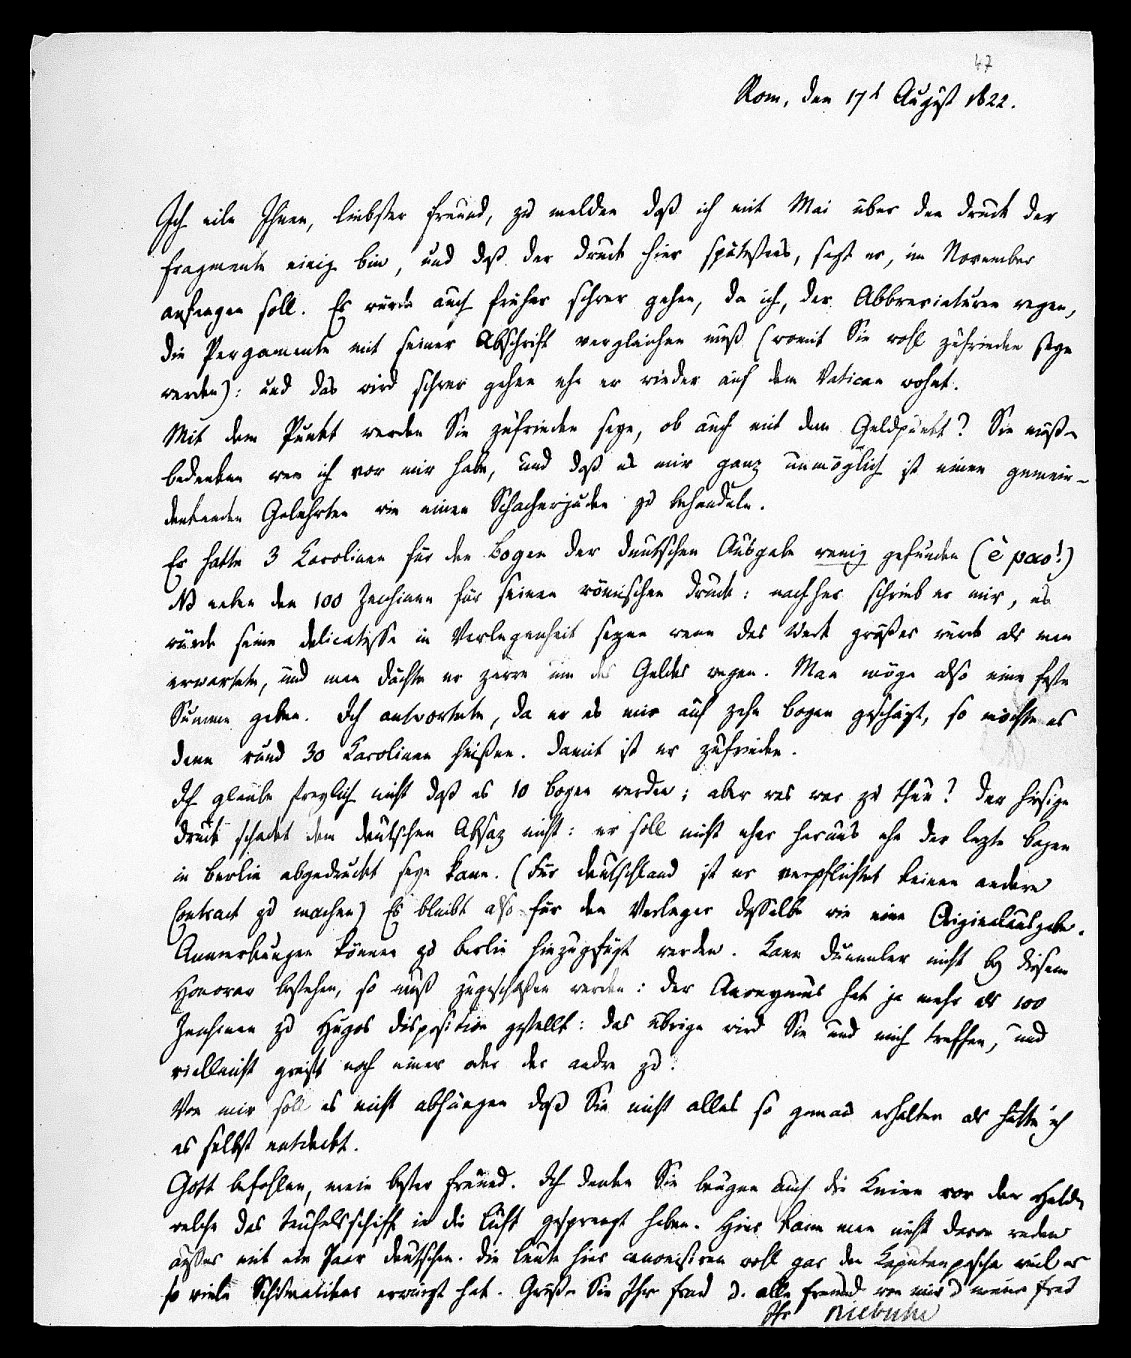 47
Rom, den 17t August 1822.
Ich eile Ihnen, liebster Freund, zu melden daß ich mit Mai über den Druck der
Fragmente einig bin, und daß der Druck hier spätestens, sagt er, im November
anfangen soll. Es würde auch früher schwer gehen, da ich, der Abbreviaturen wegen,
die Pergamente mit seiner Abschrift vergleichen muß (womit Sie wohl zufrieden seyn
werden): und das wird schwer gehen ehe er wieder auf dem Vatican wohnt.
Mit dem Punkt werden Sie zufrieden seyn, ob auch mit dem Geldpunkt? Sie müßen
bedenken wen ich vor mir habe, und daß es mir ganz unmöglich ist einen gemein-
denkenden Gelehrten wie einen Schacherjuden zu behandeln.
Er hatte 3 Karolinen für den Bogen der deutschen Ausgabe wenig gefunden (è poco!)
NB neben den 100 Zechinen für seinen römischen Druck: nachher schrieb er mir, es
würde seine delicatesse in Verlegenheit setzen wenn das Werk größer würde als man
erwartete, und man dächte er zerre um des Geldes wegen. Man möge also eine feste
Summe geben. Ich antwortete, da er es mir auf zehn Bogen geschäzt, so möchte es
denn rund 30 Karolinen heißen. Damit ist er zufrieden.
Ich glaube freylich nicht daß es 10 Bogen werden; aber was war zu thun? Der hiesige
Druck schadet dem deutschen Absaz nicht: er soll nicht eher heraus ehe der lezte Bogen
in Berlin abgedruckt seyn kann. (Für Deutschland ist er verpflichtet keinen andern
Contract zu machen) Es bleibt also für den Verleger dasselbe wie eine Originalausgabe.
Anmerkungen können zu Berlin hinzugefügt werden. Kann Dümmler nicht bey diesem
Honorar bestehen, so muß zugeschoßen werden: der Anonymus hat ja mehr als 100
Zechinen zu Hugos Disposition gestellt: das übrige wird Sie und mich treffen, und
vielleicht greift noch einer oder der andre zu.
Von mir soll es nicht abhängen daß Sie nicht alles so genau erhalten als hätte ich
es selbst entdeckt.
Gott befohlen, mein bester Freund. Ich denke Sie beugen auch die Kniee vor den Helden
welche das Teufelsschiff in die Luft gesprengt haben. Hier kann man nicht davon reden
außer mit ein Paar Deutschen. Die Leute hier canonisiren wohl gar den Kaputanpascha weil er
so viele Schismatiker erwürgt hat. Grüßen Sie Ihre Frau u. alle Freunde von mir u meiner Frau
Ihr Niebuhr